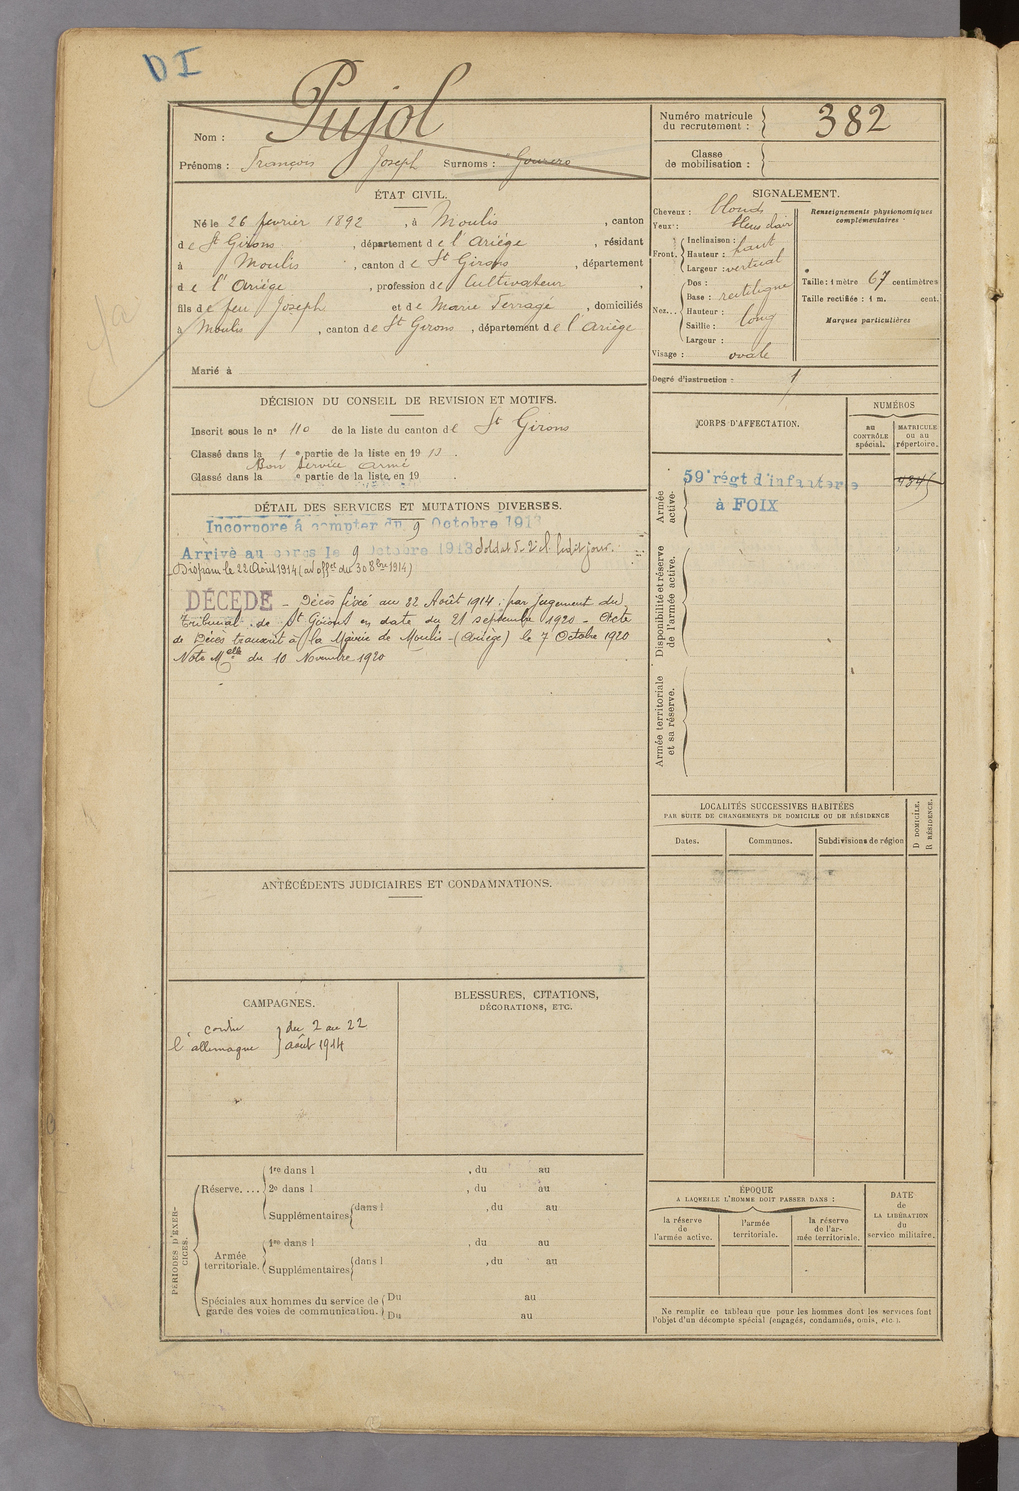 DI
Nom : Pujol
Prénoms : François Joseph Surnoms :
Numéro matricule du recrutement : 382
Classe de mobilisation :
ÉTAT CIVIL.
Né le 26 février 1892, à Moulis, canton
de St Girons, département de l'Ariège, résidant
à Moulis, canton de St Girons, département
de l'Ariège, profession de Cultivateur,
fils de feu Joseph et de Marie Terrage, domiciliés
à Moulis, canton de St Girons, département de l'Ariège
Marié à
SIGNALEMENT.
Cheveux : blonds
Yeux : bleu clair
Front. Inclinaison :
Hauteur : haut
Largeur : vertical
Nez... Dos :
Base : rectiligne
Hauteur :
Saillie : long
Largeur :
Visage : ovale
Renseignements physionomiques
complémentaires :
Taille : 1 mètre 67 centimètres
Taille rectifiée : 1 m. cent.
Marques particulières
Degré d'instruction : 1
DÉCISION DU CONSEIL DE REVISION ET MOTIFS.
Inscrit sous le n° 110 de la liste du canton de St Girons
Classé dans la 1e partie de la liste en 1913.
Bon service armé
Classé dans la e partie de la liste en 19 .
CORPS D'AFFECTATION.
NUMÉROS
au
CONTRÔLE
spécial.
MATRICULE
ou au
répertoire.
Armée
active.
59e régt d'infanterie
à FOIX
Disponibilité et réserve
de l'armée active.
Armée territoriale
et sa réserve.
DÉTAIL DES SERVICES ET MUTATIONS DIVERSES.
Incorporé à compter du 9 Octobre 1913
Arrivé au corps le 9 Octobre 1913 Soldat de 2e cl. ledit jour.
Disparu le 22 Août 1914 (av. offel du 30 8bre 1914)
DÉCÉDÉ - Décès fixé au 22 Août 1914, par Jugement du
Tribunal de St Girons en date du 21 septembre 1920 - Acte
de Décès transcrit à la Mairie de Moulis - (Ariège) le 7 Octobre 1920
Note Melle du 10 Novembre 1920
LOCALITÉS SUCCESSIVES HABITÉES
PAR SUITE DE CHANGEMENTS DE DOMICILE OU DE RÉSIDENCE
Dates.
Communes.
Subdivisions de région
D DOMICILE.
R RÉSIDENCE.
ANTÉCÉDENTS JUDICIAIRES ET CONDAMNATIONS.
CAMPAGNES.
contre du 2 au 22
l'allemagne août 1914
BLESSURES, CITATIONS,
DÉCORATIONS, ETC.
PÉRIODES D'EXER-
CICES.
Réserve.... 1re dans l , du au
2e dans l , du au
Supplémentaires dans l , du au
Armée
territoriale. 1re dans l , du au
Supplémentaires dans l , du au
Spéciales aux hommes du service de
garde des voies de communication. Du au
Du au
ÉPOQUE
A LAQUELLE L'HOMME DOIT PASSER DANS :
la réserve
de
l'armée active.
l'armée
territoriale.
la réserve
de l'ar-
mée territoriale.
DATE
de
LA LIBÉRATION
du
service militaire.
Ne remplir ce tableau que pour les hommes dont les services font
l'objet d'un décompte spécial (engagés, condamnés, omis, etc.).